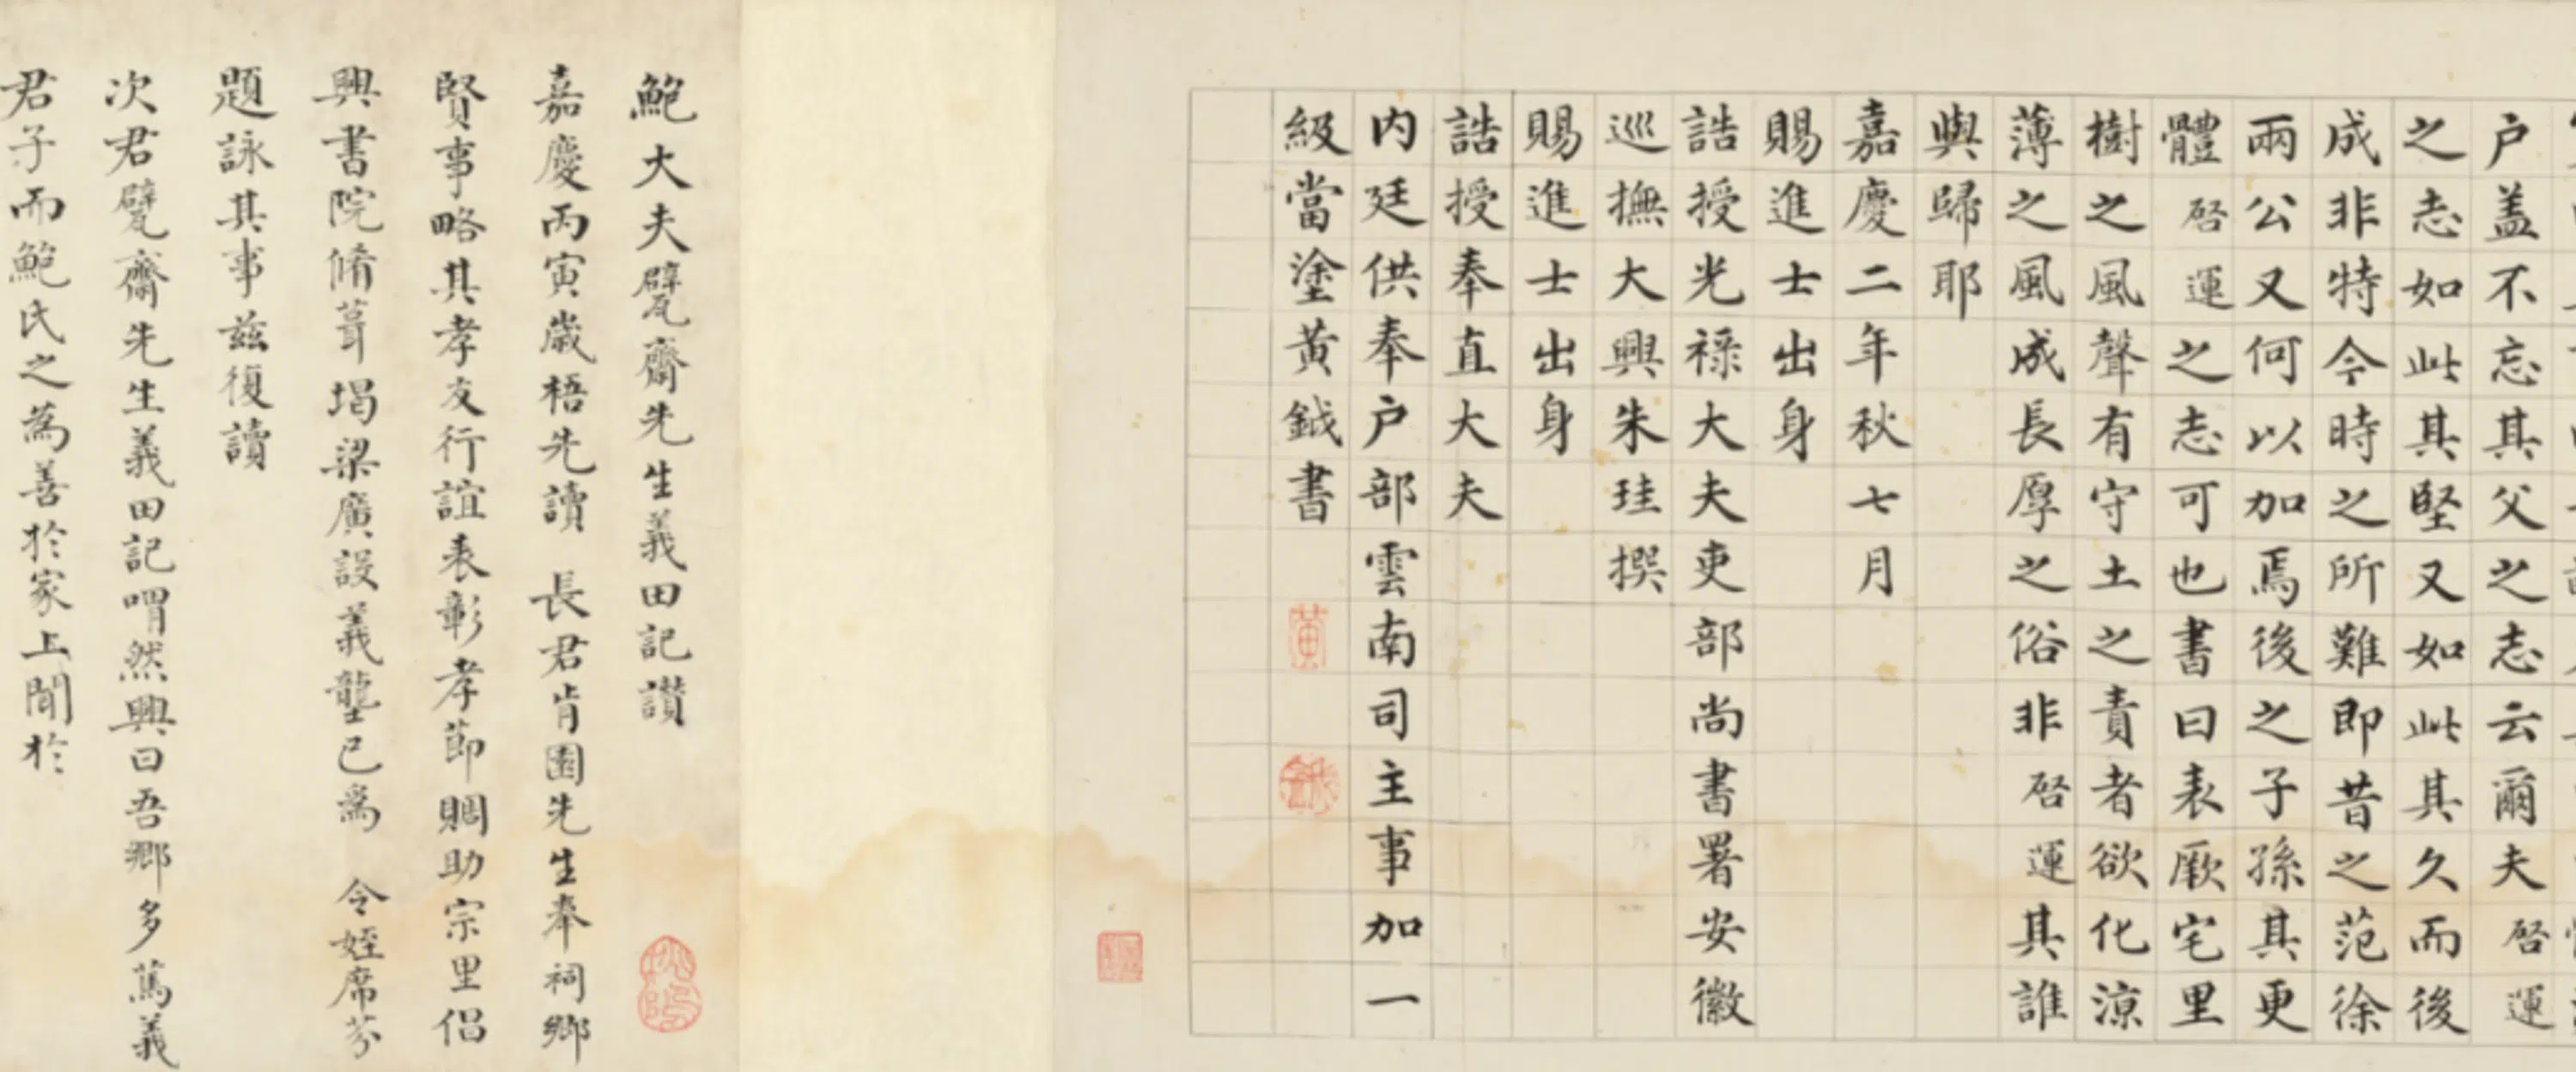 户盖不忘其父之志云爾夫啓運
之志如此其堅又如此其久而後
成非特今時之所難即昔之范徐
兩公又何以加焉後之子孫其更
體啓運之志可也書曰表厥宅里
樹之風聲有守土之責者欲化涼
薄之風成長厚之俗非啓運其誰
與歸耶
嘉慶二年秋七月
賜進士出身
誥授光祿大夫吏部尚書署安徽
巡撫大興朱珪撰
賜進士出身
誥授奉直大夫
內廷供奉户部雲南司主事加一
級當塗黃鉞書
黃
鉞
鮑大夫甓齋先生義田記讃
嘉慶丙寅歲梧先讀 長君肯園先生奉祠鄉
賢事略其孝友行誼表彰孝節賙助宗里侣
興書院脩葺堨梁廣設義壟已為 令姪席芬
題詠其事茲復讀
次君甓齋先生義田記喟然興曰吾鄉多篤義
君子而鮑氏之為善於家上聞於